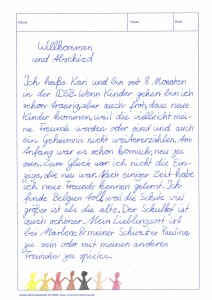 Willkommen
und Abschied
Ich heiße Kari und bin seit 8 Monaten
in der IDSB. Wenn Kinder gehen bin ich
schon traurig aber auch froh, dass neue
Kinder kommen, weil die vielleicht mei-
ne Freunde werden oder sind und auch
ein Geheimnis nicht weitererzählen. Am
Anfang war es schon komisch, neu zu
sein. Zum Glück war ich nicht die Ein-
zige, die neu war. Nach einiger Zeit habe
ich neue Freunde kennen gelernt. Ich
finde Belgien toll, weil die Schule viel
größer ist als die alte. Der Schulhof ist
auch schöner. Mein Lieblingsort ist
bei Marlene & meiner Schwester Paulina
zu sein oder mit meinen anderen
Freunden zu spielen.